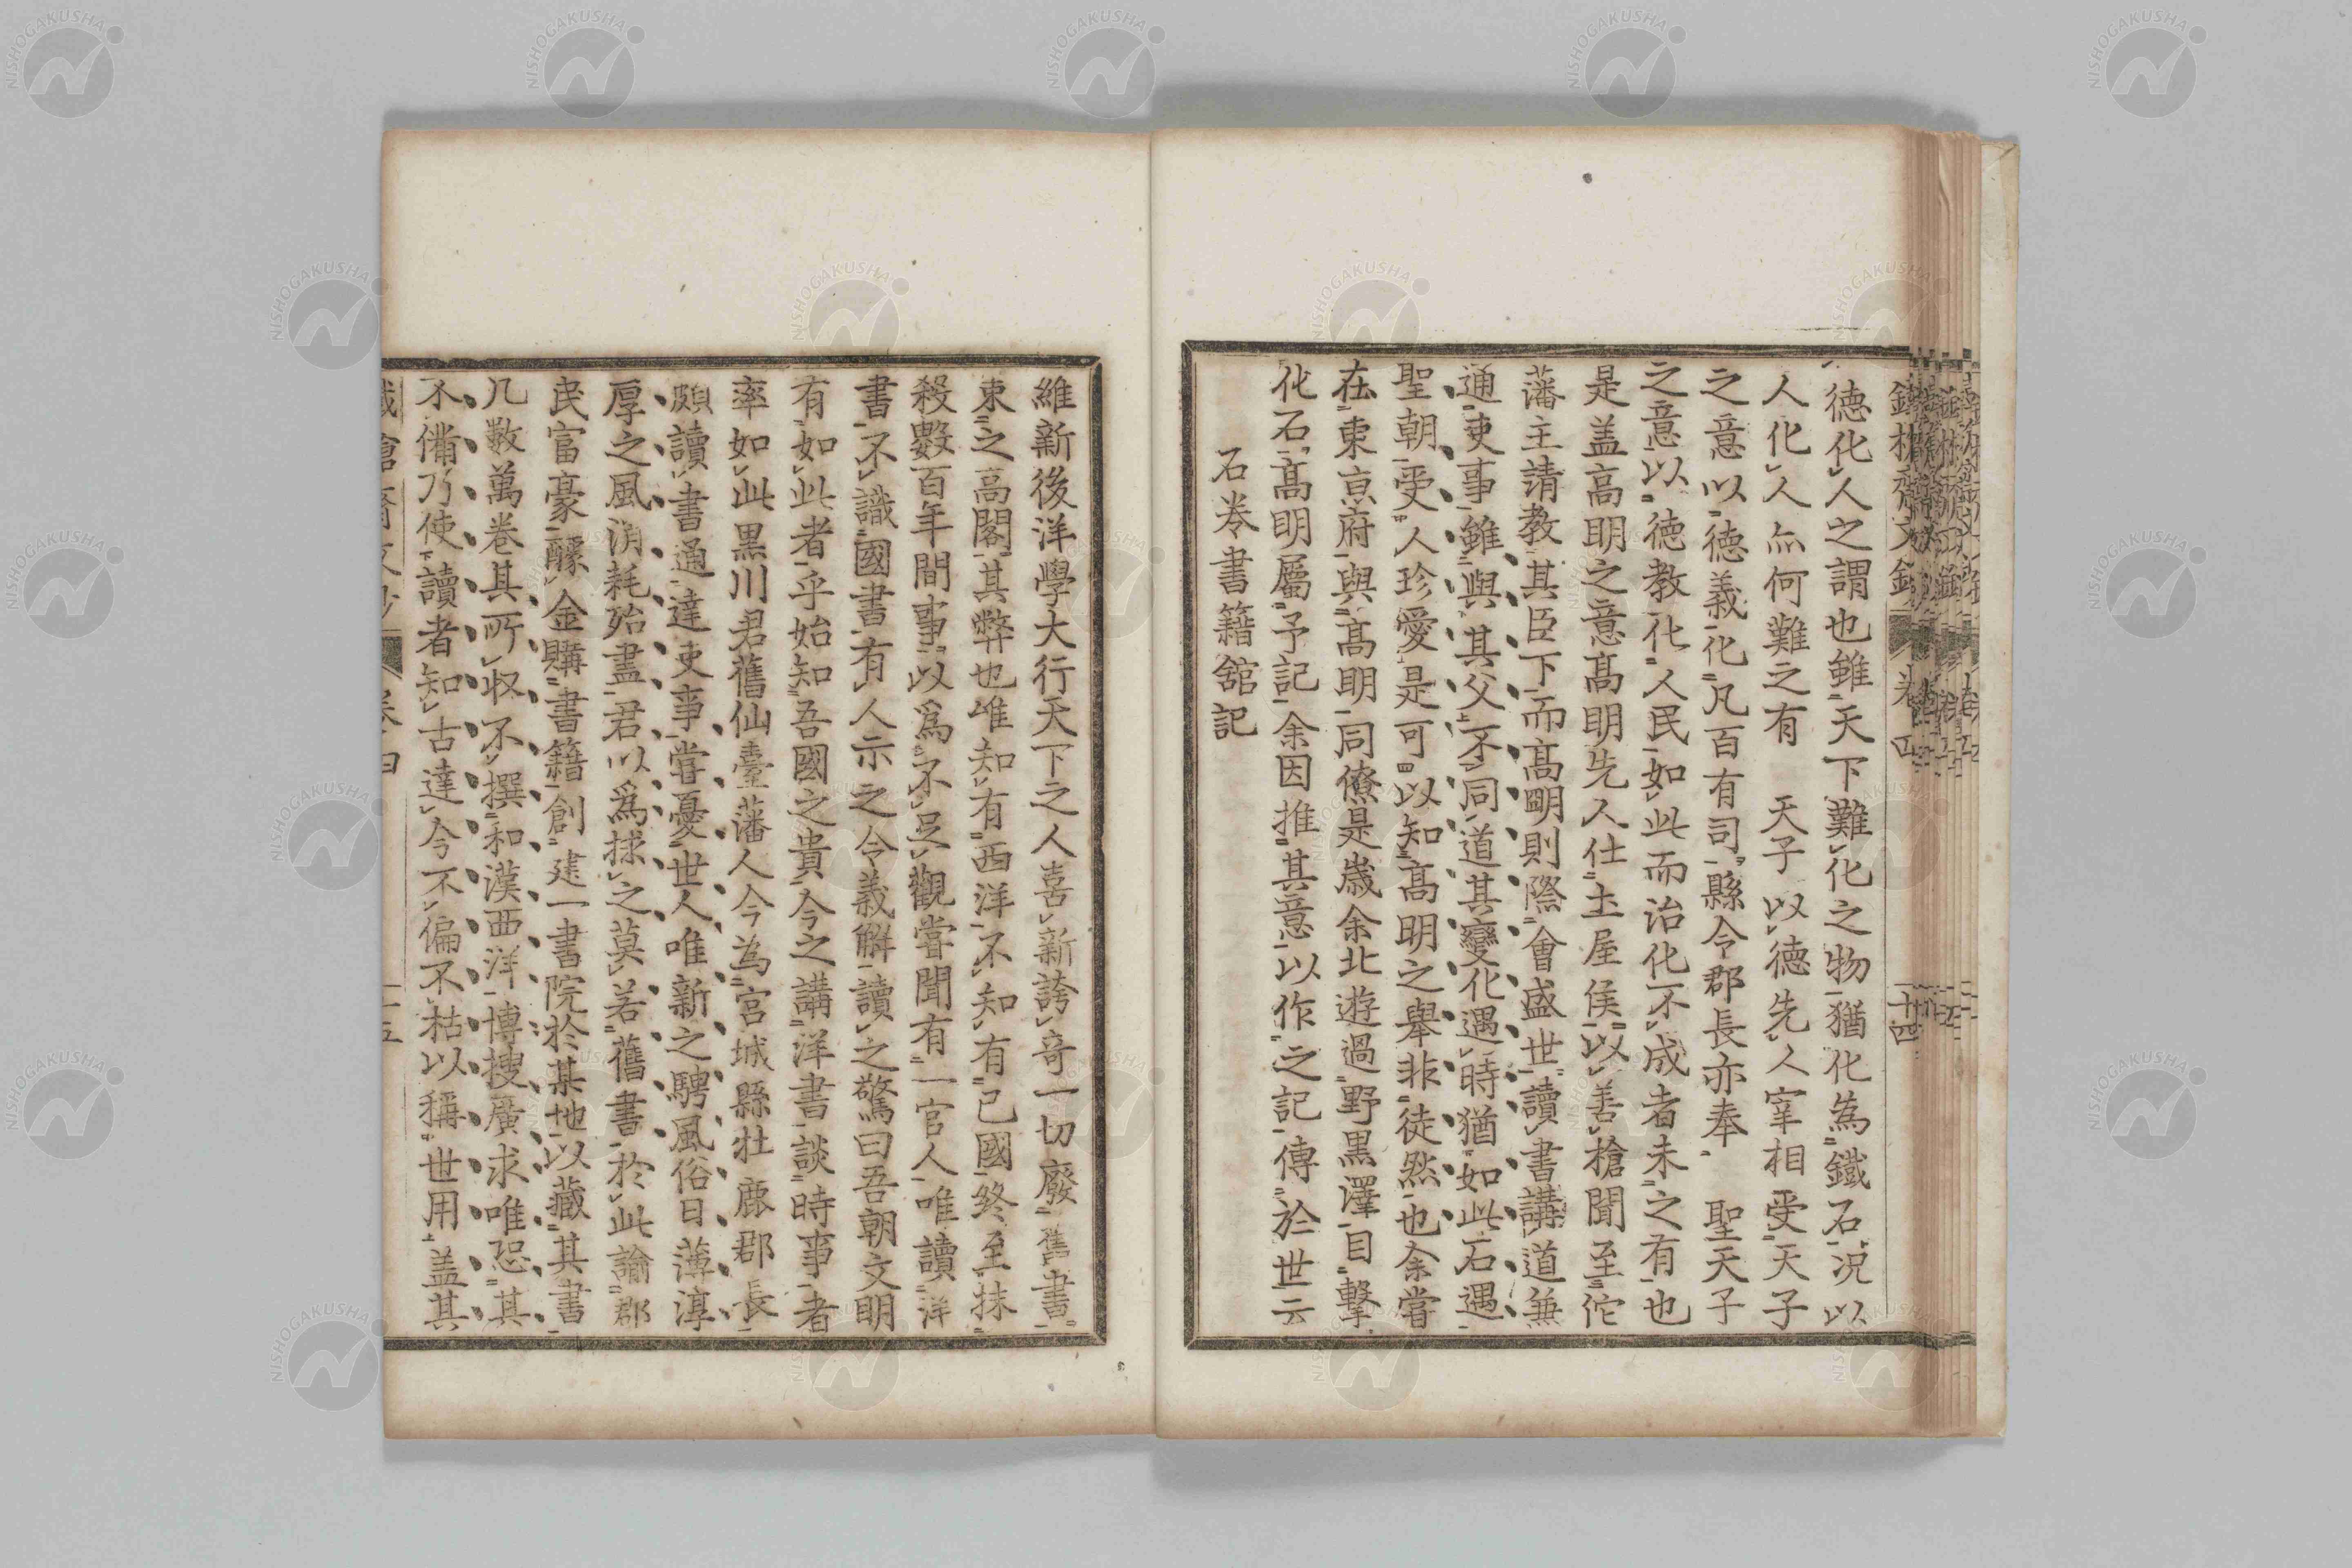 德化人之謂也雖天下難化之物猶化為鐵石况以
人化人亦何難之有　天子以德先人宰相受天子
之意以德義化凡百有司縣令郡長亦奉　聖天子
之意以德教化人民如此而治化不成者未之有也
是盖高明之意高明先人仕土屋侯以善槍聞至佗
藩主請教其臣下而高明則際會盛世讀書講道無
通吏事雖與其父不同道其變化遇時猶如此石遇
聖朝受人珍愛是可以知高明之舉非徒然也余嘗
在東京府與高明同僚是歲余北遊過野黒澤目擊
化石高明屬予記余因推其意以作之記傳於世云
石卷書籍舘記
維新後洋學大行天下之人喜新誇竒一切廢舊書
束之高閣其弊也唯知有西洋不知有己國終至抹
殺數百年間事以爲不足觀嘗聞有一官人唯讀洋
書不識國書有人示之令義解讀之驚曰吾朝文明
有如此者乎始知吾國之貴今之講洋書談時事者
率如此黒川君舊仙臺藩人今為宮城縣牡鹿郡長
頗讀書通達吏事嘗憂世人唯新之騁風俗日薄淳
厚之風消耗殆盡君以爲捄之莫若舊書於此諭郡
民富豪醵金購書籍創建一書院於某地以藏其書
凡数萬卷其所収不撰和漢西洋博搜廣求唯恐其
不備乃使讀者知古達今不偏不枯以稱世用盖其
卷四
十四